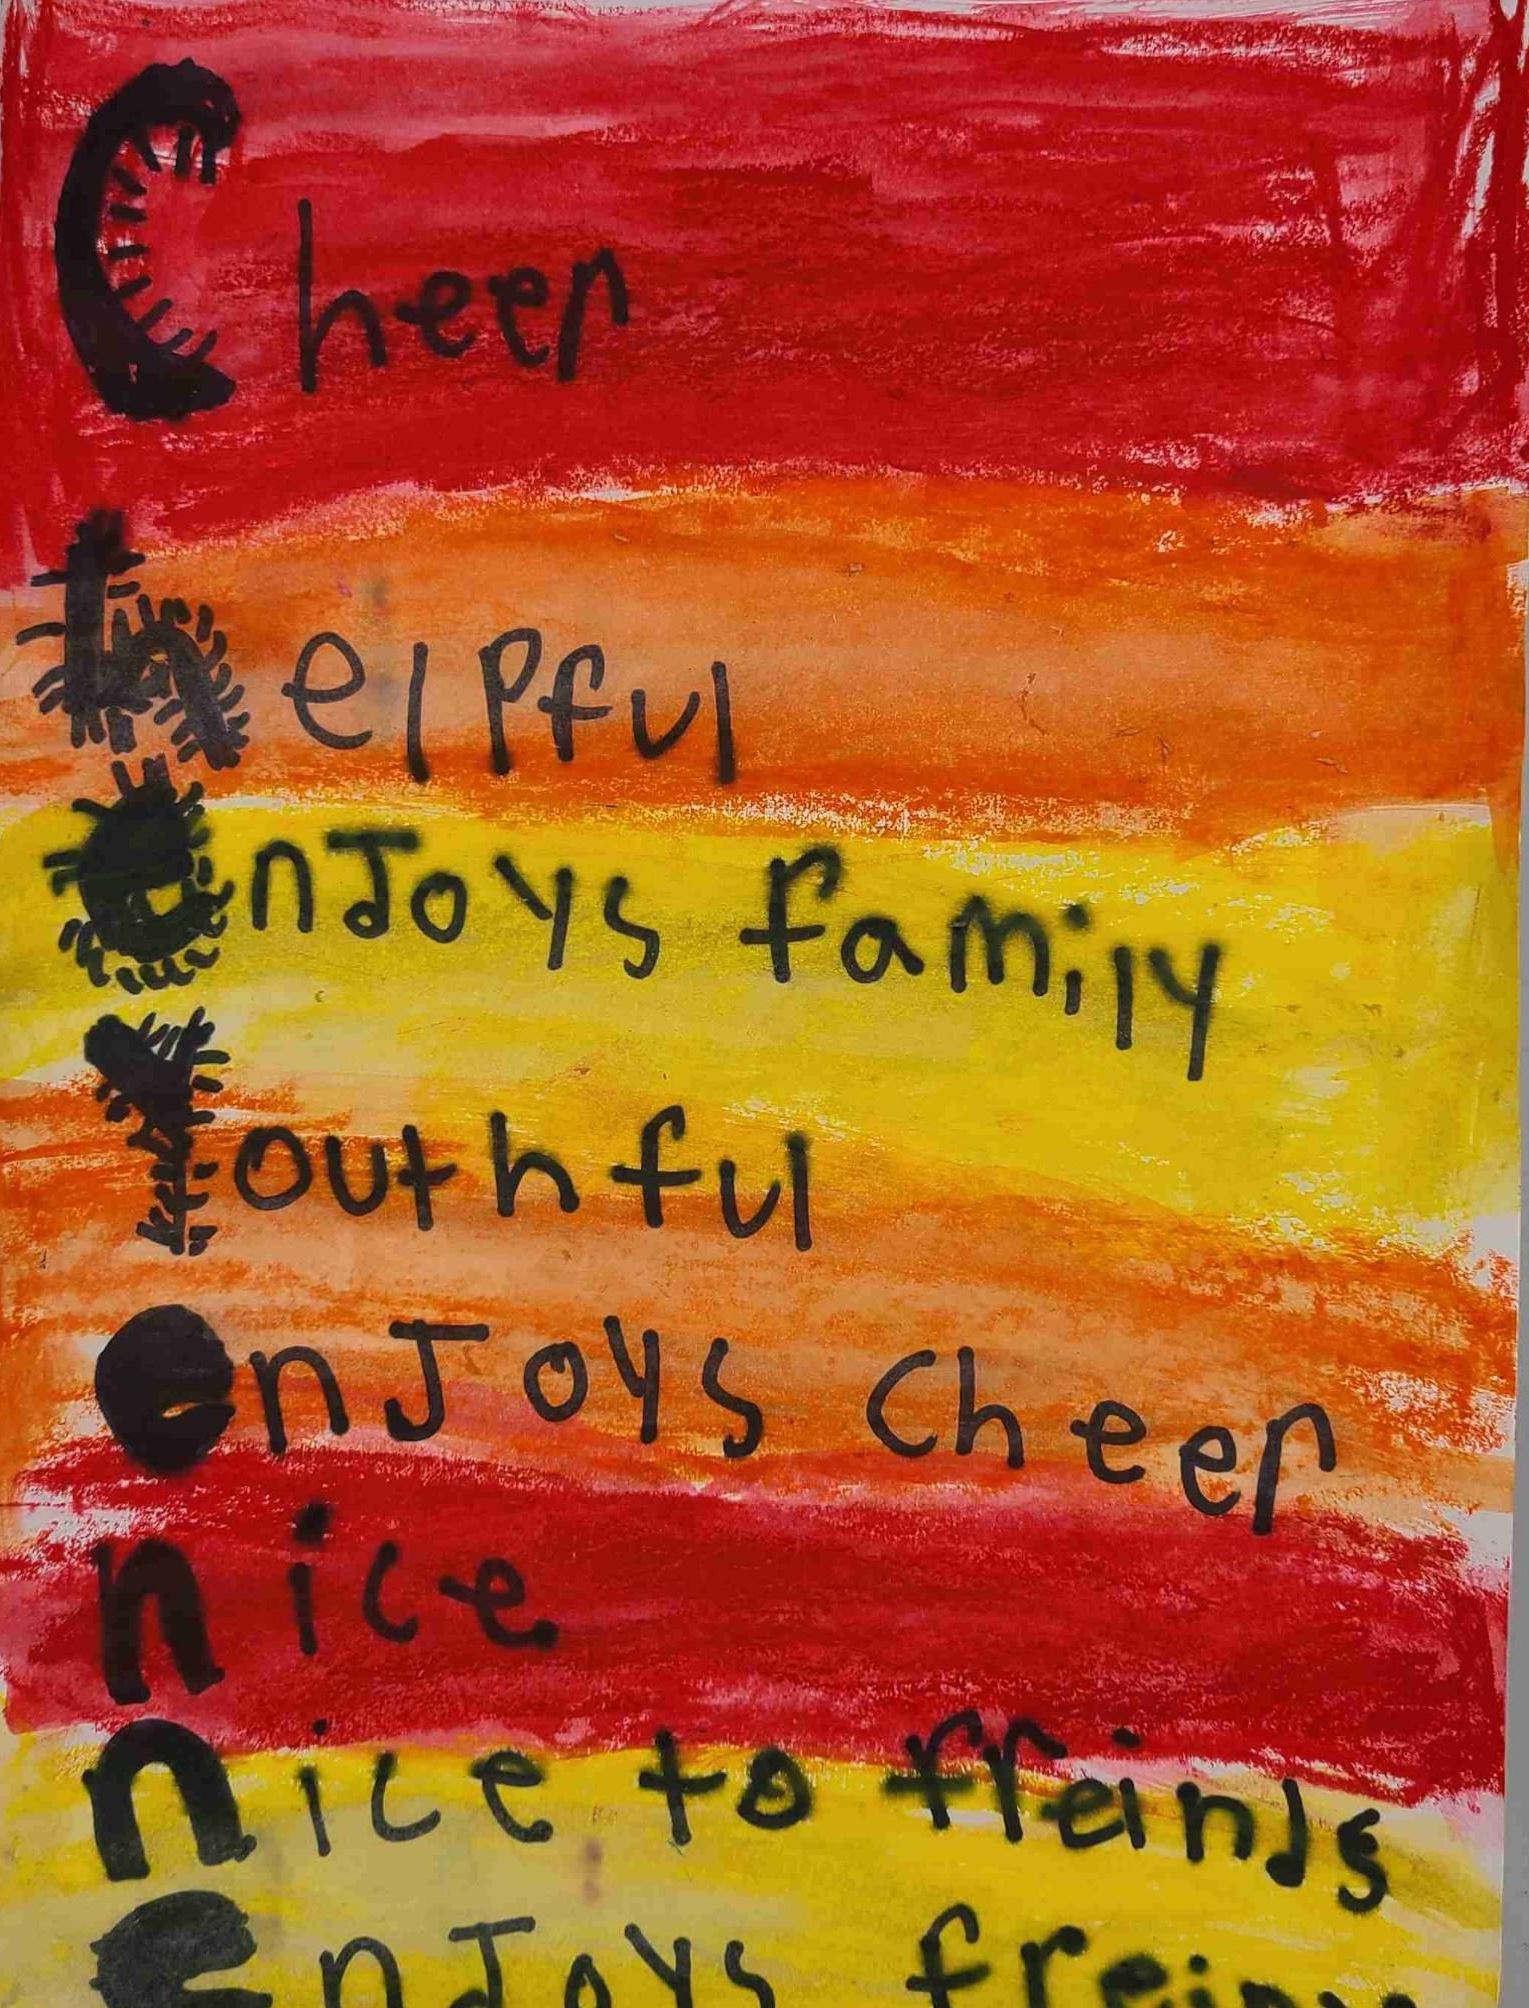 Cheer
helpful
enJoys family
Youthful
enJoys cheer
nice
nice to freinds
enJoys